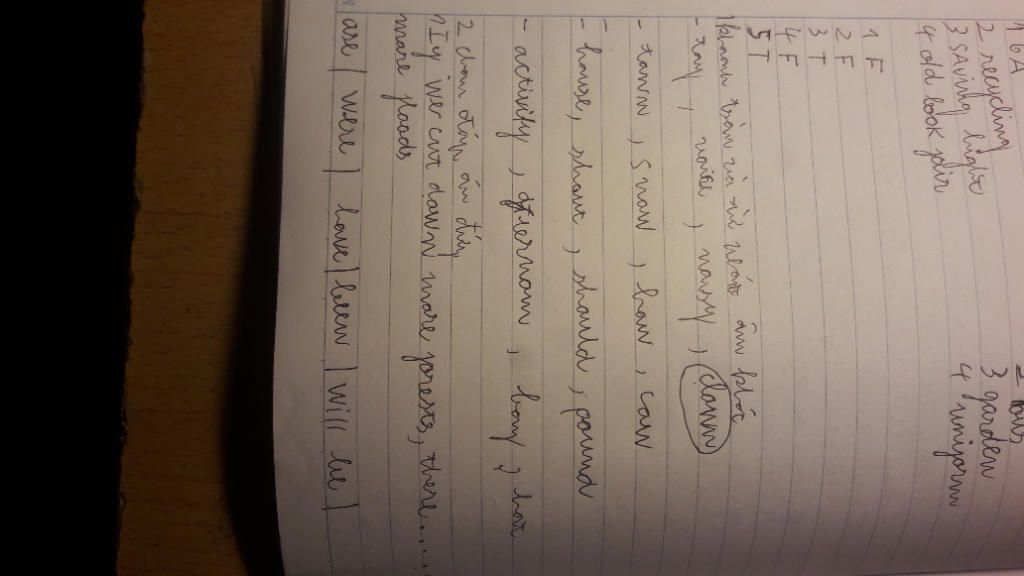 1 6A
2 recycling 2
3 SAving light 3 garden
4 old book 4 uniform
1 F
2 F
3 T
4 F
5 T
1 khoanh tròn và từ phát âm khác
- toy, voice, noisy, down
- town, snow, how, cow
- house, shout, should, pound
- activity, afternoon, hat
2 chọn đáp án đúng
1 If we cut down more forests, there......
more floods
are | were | have | been | will be |